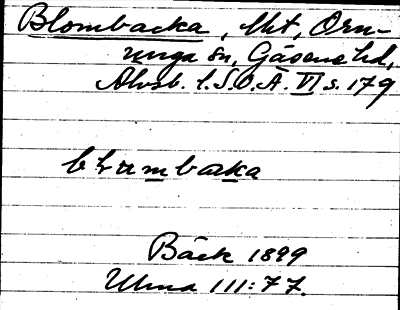 Blombacka, Hmt, Orn-
unga sn, Gäsene hd,
Älvsb. l. S.O.Ä. VI s. 179
blumbaka
Bäck 1899
Ulma 111:77.